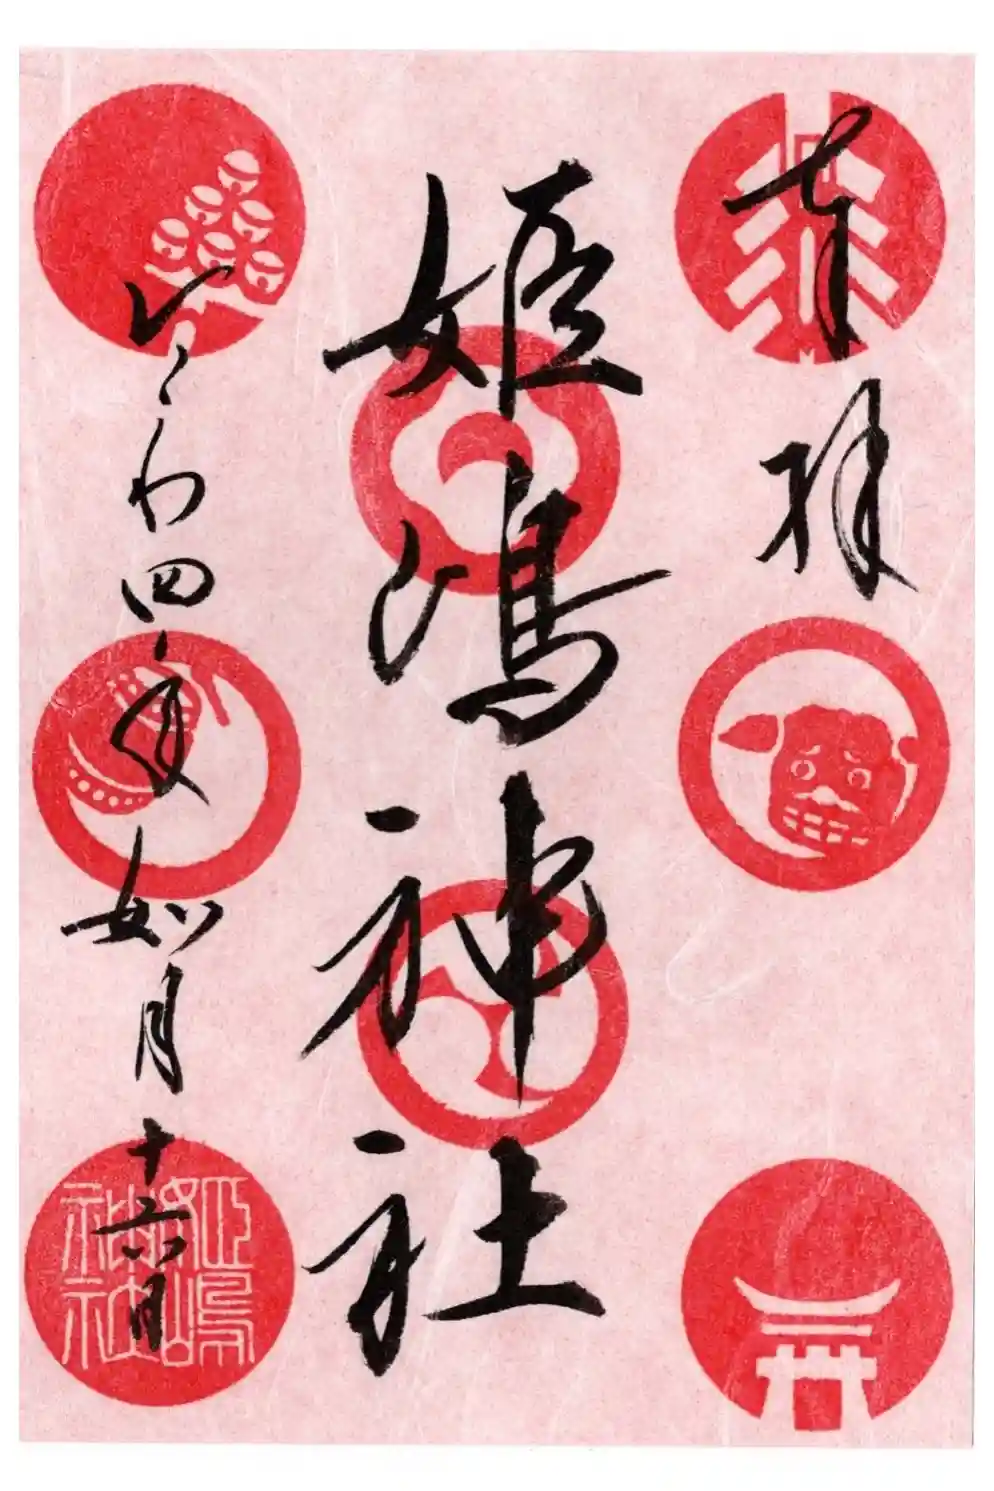 奉拝
姫嶋神社
れいわ四年如月十六日
姫嶋
神社